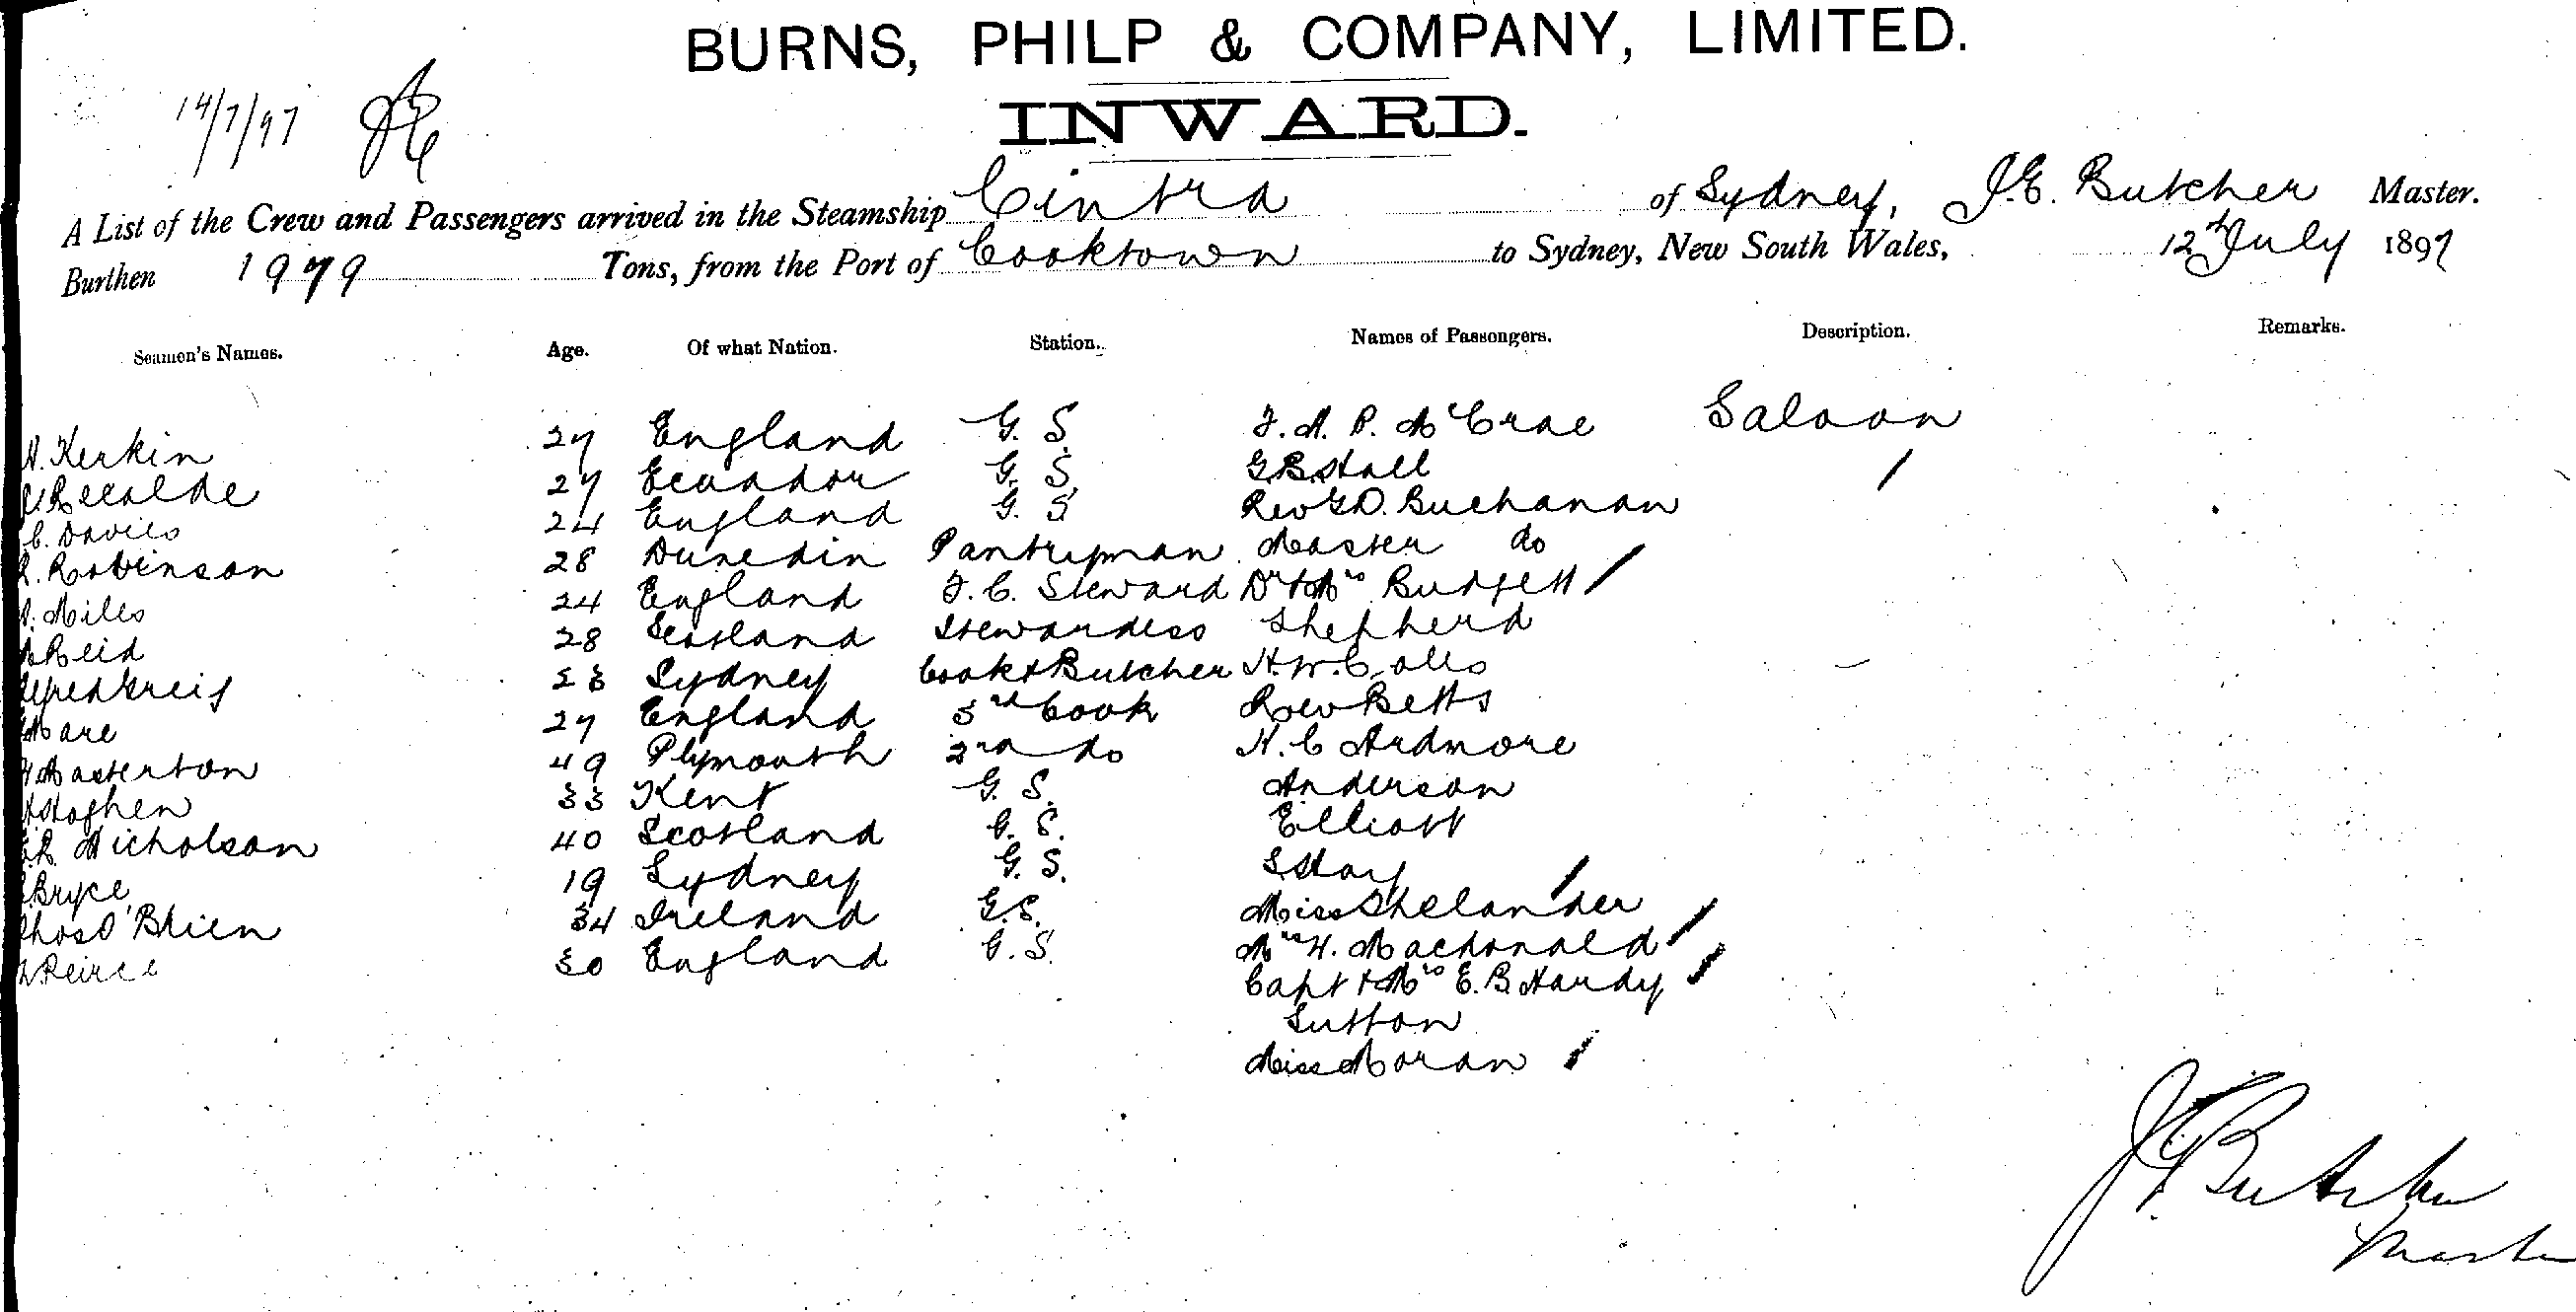 BURNS, PHILP & COMPANY, LIMITED.
14/7/97
INWARD.
A List of the Crew and Passengers arrived in the Steamship Cintra of Sydney, J.E. Butcher Master.
Burthen 1979 Tons, from the Port of Cooktown to Sydney, New South Wales, 12th July 1897
Seamen's Names. Age. Of what Nation. Station. Names of Passengers. Description. Remarks.
Kerkin 27 England G. S. F. M. P. McCrae Saloon
Recalde 27 Ecuador G. S. G B Hall
C. Davies 24 England G. S Rev G D. Buchanan
R. Robinson 28 Dunedin Pantryman Master do
Miles 24 England F. C. Steward Dr & Mrs Burfett
Reid 28 Scotland Stewardess Shepherd
Alfred Greig 23 Sydney Cook & Butcher H. W. Colls
Mare 27 England 3rd Cook Rev Betts
Masterton 49 Plymouth 2nd do H. C Ardmore
33 Kent G. S. Anderson
Nicholson 40 Scotland G. S. Elliott
Bryce 19 Sydney G. S. S Hay
Thos O'Brien 34 Ireland G. S. Miss Shelander
Peirce 30 England G. S. Mrs H. Macdonald
Capt & Mrs E. B. Hardy
Sutton
Miss Moran
J E Butcher
Master